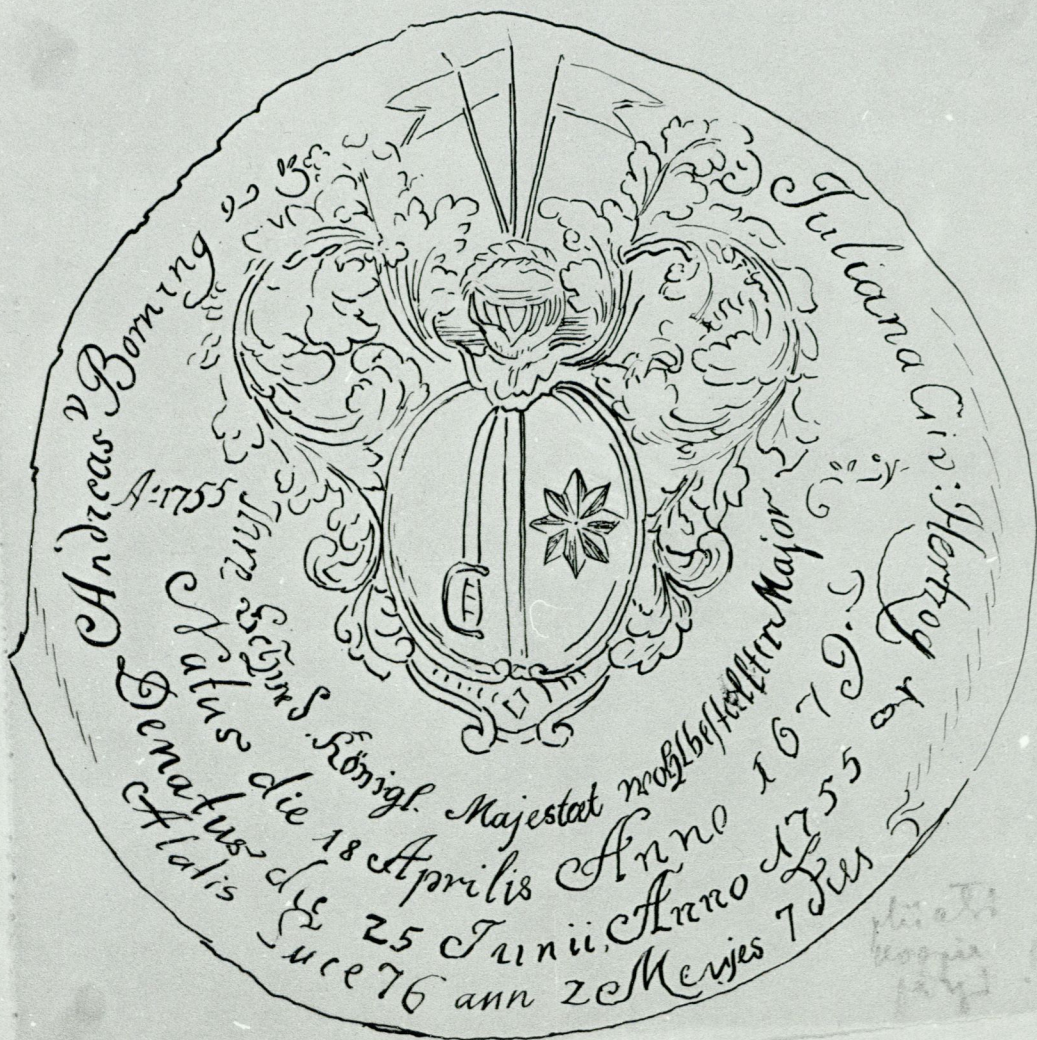 Andreas v Borning
Juliana Civ: Hertzog
A:1755
Ihre Königl. Majestæt wohlbestellter Major
Natus die 18 Aprilis Anno 1679.
Denatus die 25 Iunii. Anno 1755
Alatis Luce 76 ann 2 Menses 7 Dies